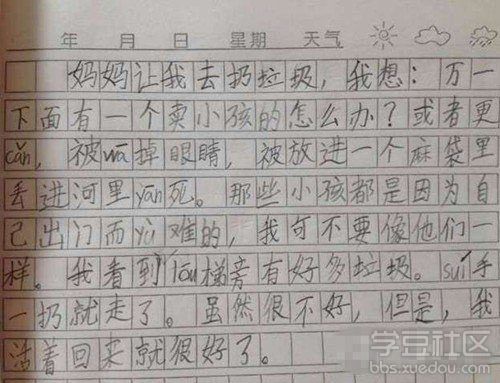 年 月 日 星期 天气
妈妈让我去扔垃圾，我想：万一
下面有一个卖小孩的怎么办？或者更
cǎn，被wā掉眼睛，被放进一个麻袋里
丢进河里yān死。那些小孩都是因为自
己出门而yù难的，我可不要像他们一
样。我看到lóu梯旁有好多垃圾。suí手
一扔就走了。虽然很不好，但是，我
活着回来就很好了。
学豆社区
bbs.xuedou.com